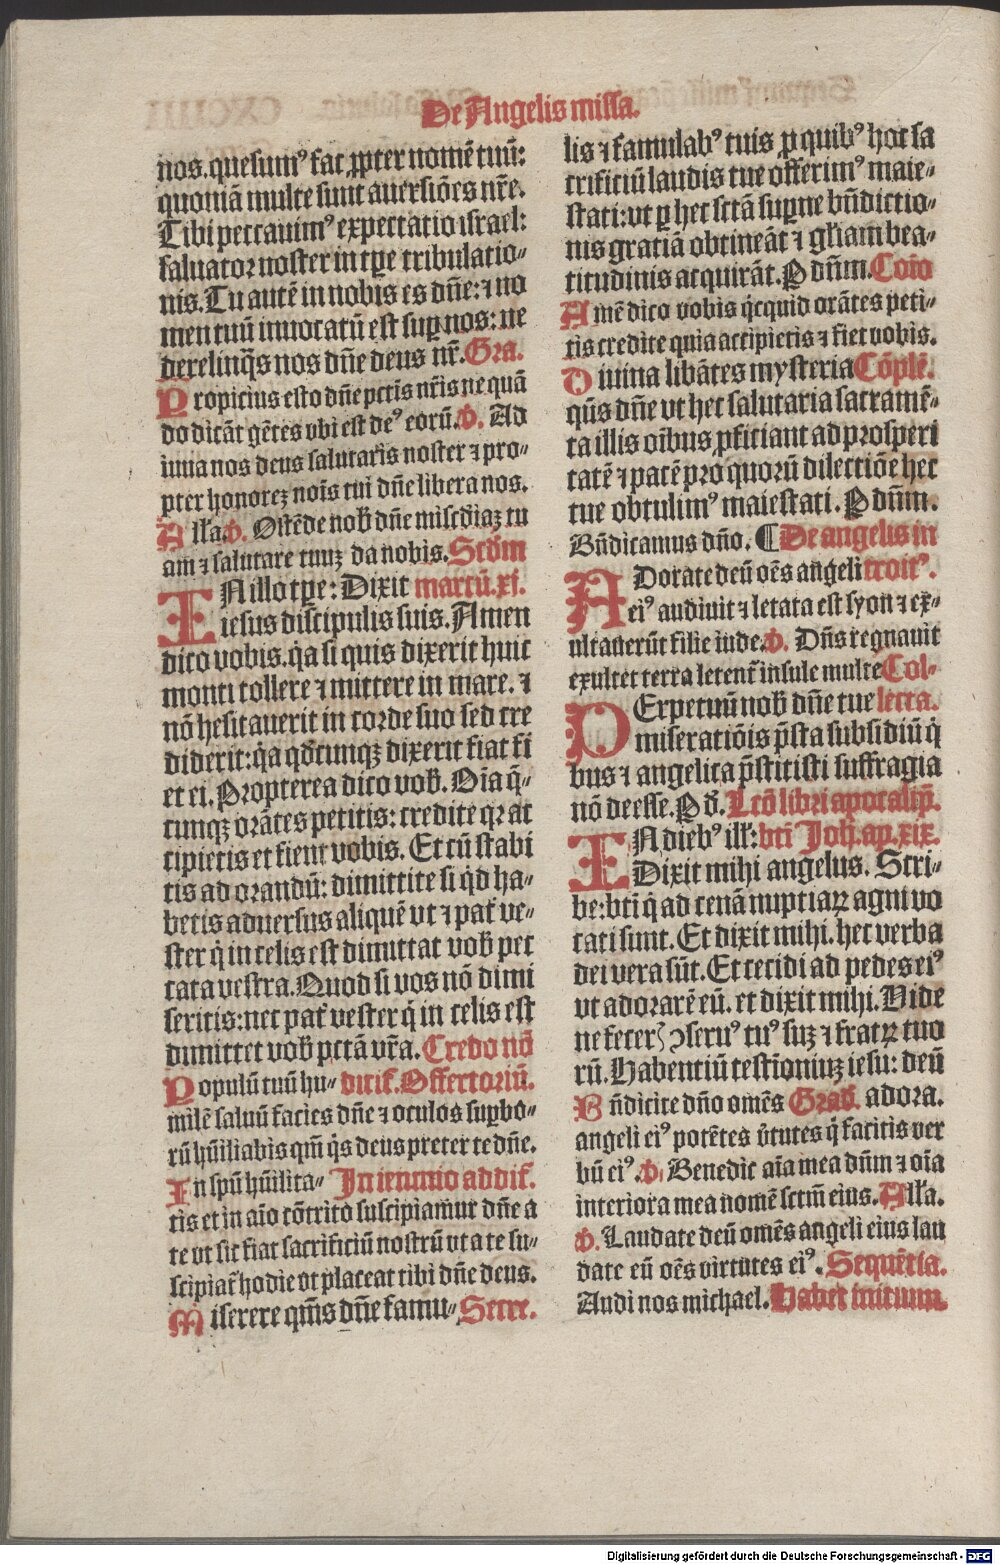 De Angelis missa.
nos. quesumꝰ fac ꝓpter nomē tuū:
quoniā multe sunt auersiōes nr̄e.
Tibi peccauimꝰ expectatio israel:
saluator noster in tꝑe tribulatio⸗
nis. Tu autē in nobis es dn̄e: ⁊ no
men tuū inuocatū est suꝑ nos: ne
derelinq̄s nos dn̄e deus nr̄. Gra.
Propicius esto dn̄e pctīs nr̄is ne quā
do dicāt gētes vbi est deꝰ eorū. ℣. Ad
iuua nos deus salutaris noster ⁊ pro⸗
pter honorez noīs tui dn̄e libera nos.
Alła. ℣. Ostēde nob̄ dn̄e miscd̄iaꝫ tu
am ⁊ salutare tuuꝫ da nobis. Scd̄m
IN illo tꝑe: Dixit marcū. xj.
iesus discipulis suis. Amen
dico vobis. q̇a si quis dixerit huic
monti tollere ⁊ mittere in mare. ⁊
nō hesitauerit in corde suo sed cre
diderit: q̇a qd̄cunqꝫ dixerit fiat fi
et ei. Propterea dico vob̄. Oīa q̄⸗
cunqꝫ orātes petitis: credite qꝛ ac
cipietis et fient vobis. Et cū stabi
tis ad orandū: dimittite si q̇d ha⸗
betis aduersus aliquē vt ⁊ pat̄ ve⸗
ster q̇ in celis est dimittat vob̄ pec
cata vestra. Quod si vos nō dimi
seritis: nec pat̄ vester q̇ in celis est
dimittet vob̄ pctā vr̄a. Credo nō
Populū tuū hu⸗ dicit̄. Offertoriū.
milē saluū facies dn̄e ⁊ oculos suꝑbo⸗
rū hūiliabis qm̄ q̇s deus preter te dn̄e.
In spū hūilita⸗ In ieiunio addit̄.
tis et in aīo cōtrito suscipiamur dn̄e a
te vt sic fiat sacrificiū nostrū vt a te su⸗
scipiat̄ hodie vt placeat tibi dn̄e deus.
Miserere qm̄s dn̄e famu⸗ Secre.
lis ⁊ famulabꝰ tuis ꝓ quibꝰ hoc sa
crificiū laudis tue offerimꝰ maie⸗
stati: vt ꝑ hec sctā suꝑne bn̄dictio⸗
nis gratiā obtineāt ⁊ gl̄iam bea⸗
titudinis acquirāt. P dn̄m. Coīo
Amē dico vobis q̇cquid orātes peti⸗
tis credite quia accipietis ⁊ fiet vobis.
Diuina libātes mysteria Cōplē.
qūs dn̄e vt hec salutaria sacramē⸗
ta illis oībus ꝓficiant ad prosperi
tatē ⁊ pacē pro quorū dilectiōe hec
tue obtulimꝰ maiestati. P dn̄m.
Bn̄dicamus dn̄o. ¶ De angelis in
ADorate deū oēs angeli troitꝰ.
eiꝰ audiuit ⁊ letata est syon ⁊ ex⸗
ultauerūt filie iude. ℣. Dn̄s regnauit
exultet terra letent̄ insule multe Col⸗
PErpetuū nob̄ dn̄e tue lecta.
miseratiōis p̄sta subsidiū q̇
bus ⁊ angelica p̄stitisti suffragia
nō deesse. P d̄. Lcō libri apocalip̄.
IN diebꝰ ill̄: bti Joh̄. ap. xix.
Dixit mihi angelus. Scri⸗
be: bti q̇ ad cenā nuptiaꝝ agni vo
cati sunt. Et dixit mihi. hec verba
dei vera sūt. Et cecidi ad pedes eiꝰ
vt adorarē eū. et dixit mihi. Vide
ne fecer̄ ↄseruꝰ tuꝰ suꝫ ⁊ fratꝝ tuo
rū. Habentiū testīoniuꝫ iesu: deū
Bn̄dicite dn̄o omēs Grad̄. adora.
angeli eiꝰ potētes v̇tutes q̇ facitis ver
bū eiꝰ. ℣. Benedic aīa mea dn̄m ⁊ oīa
interiora mea nomē sctm̄ eius. Alła.
℣. Laudate deū omēs angeli eius lau
date eū oēs virtutes eiꝰ. Sequētia.
Audi nos michael. Habet initium.
Digitalisierung gefördert durch die Deutsche Forschungsgemeinschaft - DFG